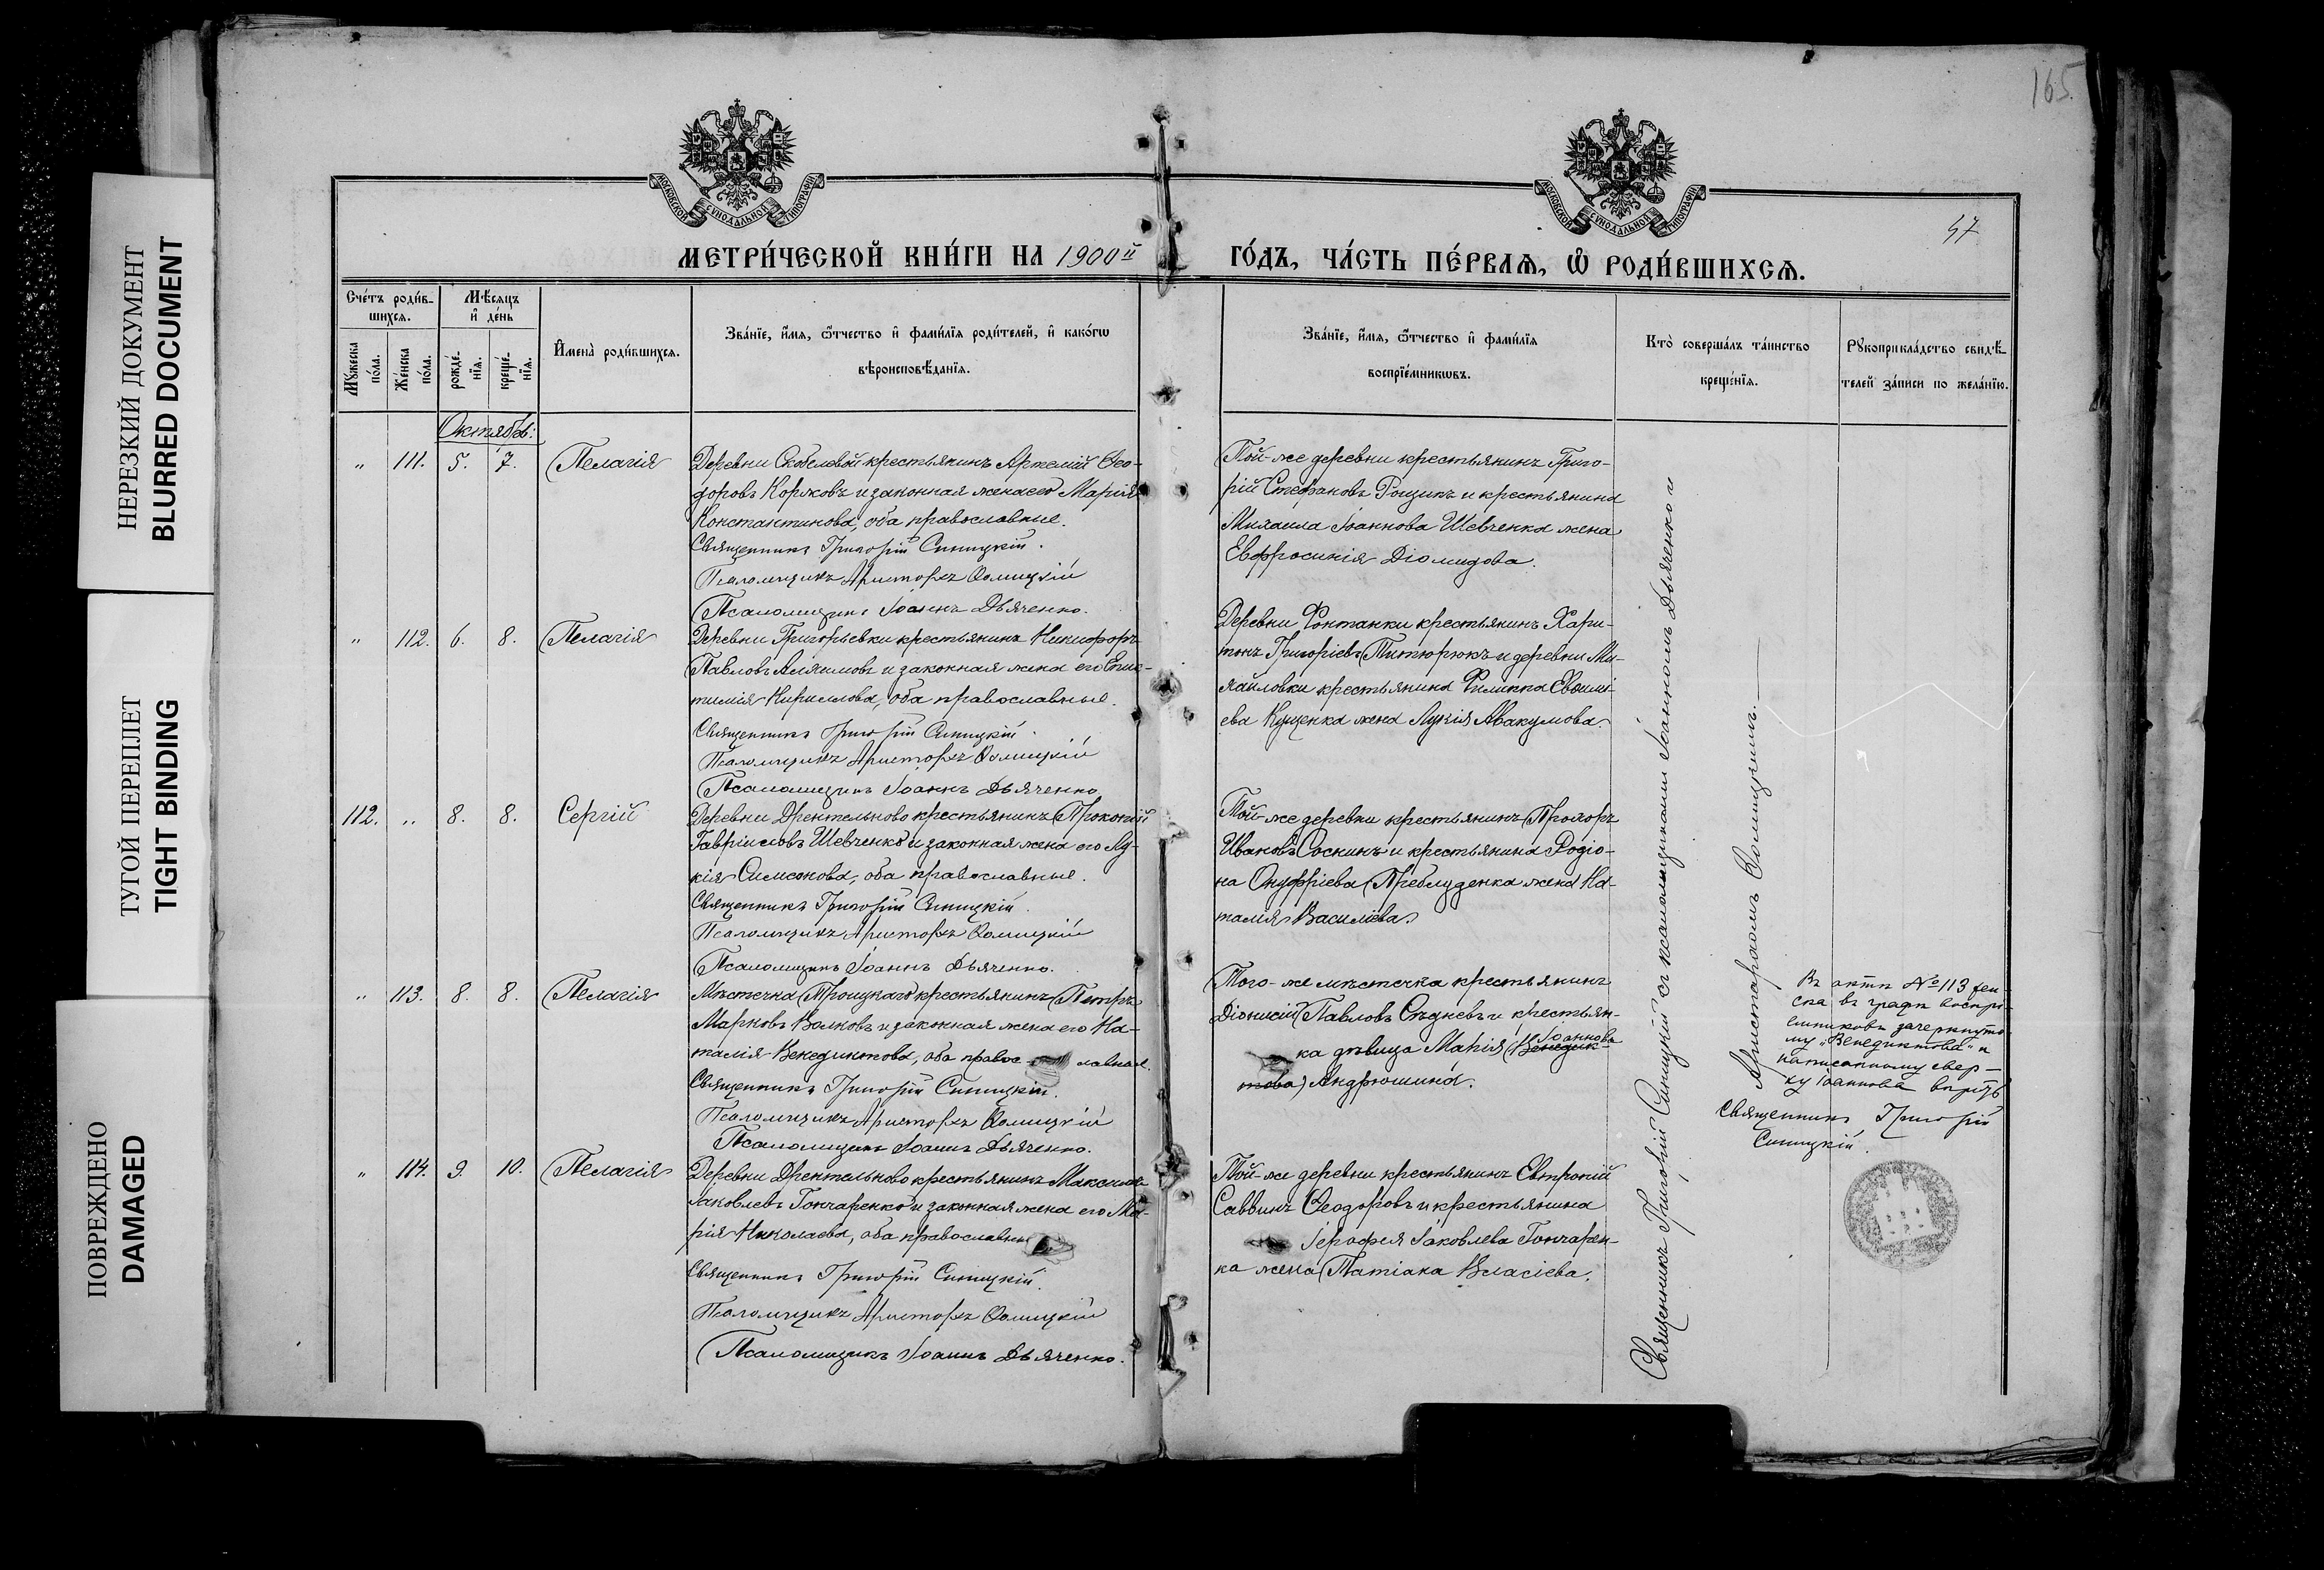 НЕРЕЗКИЙ ДОКУМЕНТ
BLURRED DOCUMENT
ТУГОЙ ПЕРЕПЛЕТ
TIGHT BINDING
ПОВРЕЖДЕНО
DAMAGED
165.
47
МОСКОВСКОЙ СѴНОДАЛЬНОЙ ТИПОГРАФІИ
МОСКОВСКОЙ СѴНОДАЛЬНОЙ ТИПОГРАФІИ
МЕТРИ́ЧЕСКОЙ КНИ́ГИ НА 1900й ГО́ДЪ, ЧА́СТЬ ПЕ́РВАѦ, Ѡ҆ РОДИ́ВШИХСѦ.
Сче́тъ роди́в-
шихсѧ.
Мꙋ́жеска по́ла.
Же́нска по́ла.
Мѣ́сѧцъ
и҆ де́нь
рожде́-
нїѧ.
креще́-
нїѧ.
И҆мена̀ роди́вшихсѧ.
Зва́нїе, и҆́мѧ, ѻ҆́тчество и҆ фами́лїѧ роди́телей, и҆ како́гѡ
вѣроисповѣ́данїѧ.
Зва́нїе, и҆́мѧ, ѻ҆́тчество и҆ фами́лїѧ
воспрїе́мникѡвъ.
Кто̀ соверша́лъ та́инство
креще́нїѧ.
Рꙋкоприкла́дство свидѣ́-
телей за́писи по жела́нїю.
Октябрь:
„ 111. 5. 7. Пелагія
Деревни Скобелевой крестьянинъ Артемій Ѳео-
доровъ Коржовъ и законная жена его Марія
Константинова, оба православные.
Священникъ Григорій Синицкій.
Псаломщикъ Аристархъ Ѳомицкій
Псаломщикъ Іоаннъ Дьяченко.
Той-же деревни крестьянинъ Григо-
рій Стефановъ Рощинъ и крестьянина
Михаила Іоаннова Шевченка жена
Евфросинія Діомидова.
„ 112. 6. 8. Пелагія
Деревни Григорьевки крестьянинъ Никифоръ
Павловъ и законная жена его Епис-
тимія Кириллова, оба православные.
Священникъ Григорій Синицкій.
Псаломщикъ Аристархъ Ѳомицкій
Псаломщикъ Іоаннъ Дьяченко
Деревни Фонтанки крестьянинъ Хари-
тонъ Григоріевъ Питюрюкъ и деревни Ми-
хайловки крестьянина Филиппа Евѳимі-
ева Куценка жена Лукія Авакумова.
112. „ 8. 8. Сергій
Деревни Дрентельново крестьянинъ Прокопій
Гавріиловъ Шевченко и законная жена его Лу-
кія Симеонова, оба православные.
Священникъ Григорій Синицкій.
Псаломщикъ Аристархъ Ѳомицкій
Псаломщикъ Іоаннъ Дьяченко.
Той-же деревни крестьянинъ Прохоръ
Ивановъ Соскинъ и крестьянина Родіо-
на Онуфріева Приблуденка жена На-
талія Василіева.
„ 113. 8. 8. Пелагія
Мѣстечка Троицкаго крестьянинъ Петръ
Марковъ Волковъ и законная жена его На-
талія Венедиктова, оба правос- лавная.
Священникъ Григорій Синицкій.
Псаломщикъ Аристархъ Ѳомицкій
Псаломщикъ Іоаннъ Дьяченко.
Того-же мѣстечка крестьянинъ
Діонисій Павловъ Слѣдневъ и крестьян-
Іоаннова
ка дѣвица Марія (Венедик-
това) Андрюшина.
Въ актѣ № 113 жен-
ска въ графѣ воспрі-
емниковъ зачеркнуто-
му „Венедиктова" и
написанному свер-
ху Іоаннова вѣрить
Священникъ Григорій
Синицкій.
„ 114. 9. 10. Пелагія
Деревни Дрентельново крестьянинъ Максимъ
Іаковлевъ Гончаренко и законная жена его Ма-
рія Николаева, оба православны
Священникъ Григорій Синицкій.
Псаломщикъ Аристархъ Ѳомицкій
Псаломщикъ Іоаннъ Дьяченко.
Той-же деревни крестьянинъ Евтропій
Саввинъ Ѳеодоровъ и крестьянина
Іероѳея Іаковлева Гончарен-
ка жена Татіана Власіева.
Священникъ Григорій Синицкій съ псаломщиками Іоанномъ Дьяченко и
Аристархомъ Ѳомицкимъ.